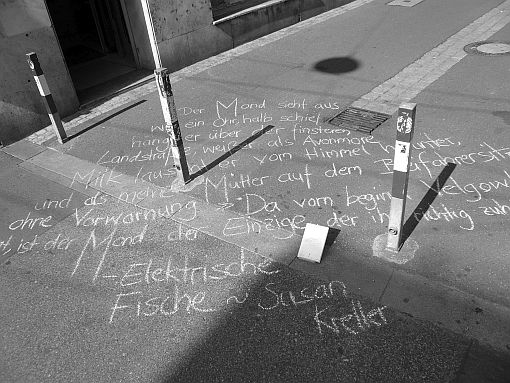 Der Mond sieht aus
wie ein Ohr, hängt schief
über der finsteren
Landstraße, weißer als Avonmore
Milch, lauscht er vom Himmel herunter,
und als meine Mutter auf dem Beifahrersitz
ohne Vorwarnung: Da vorn beginnt Velgow
ist der Mond der Einzige der ihr richtig zuhört
-Elektrische
Fische ~ Susan
Kreller